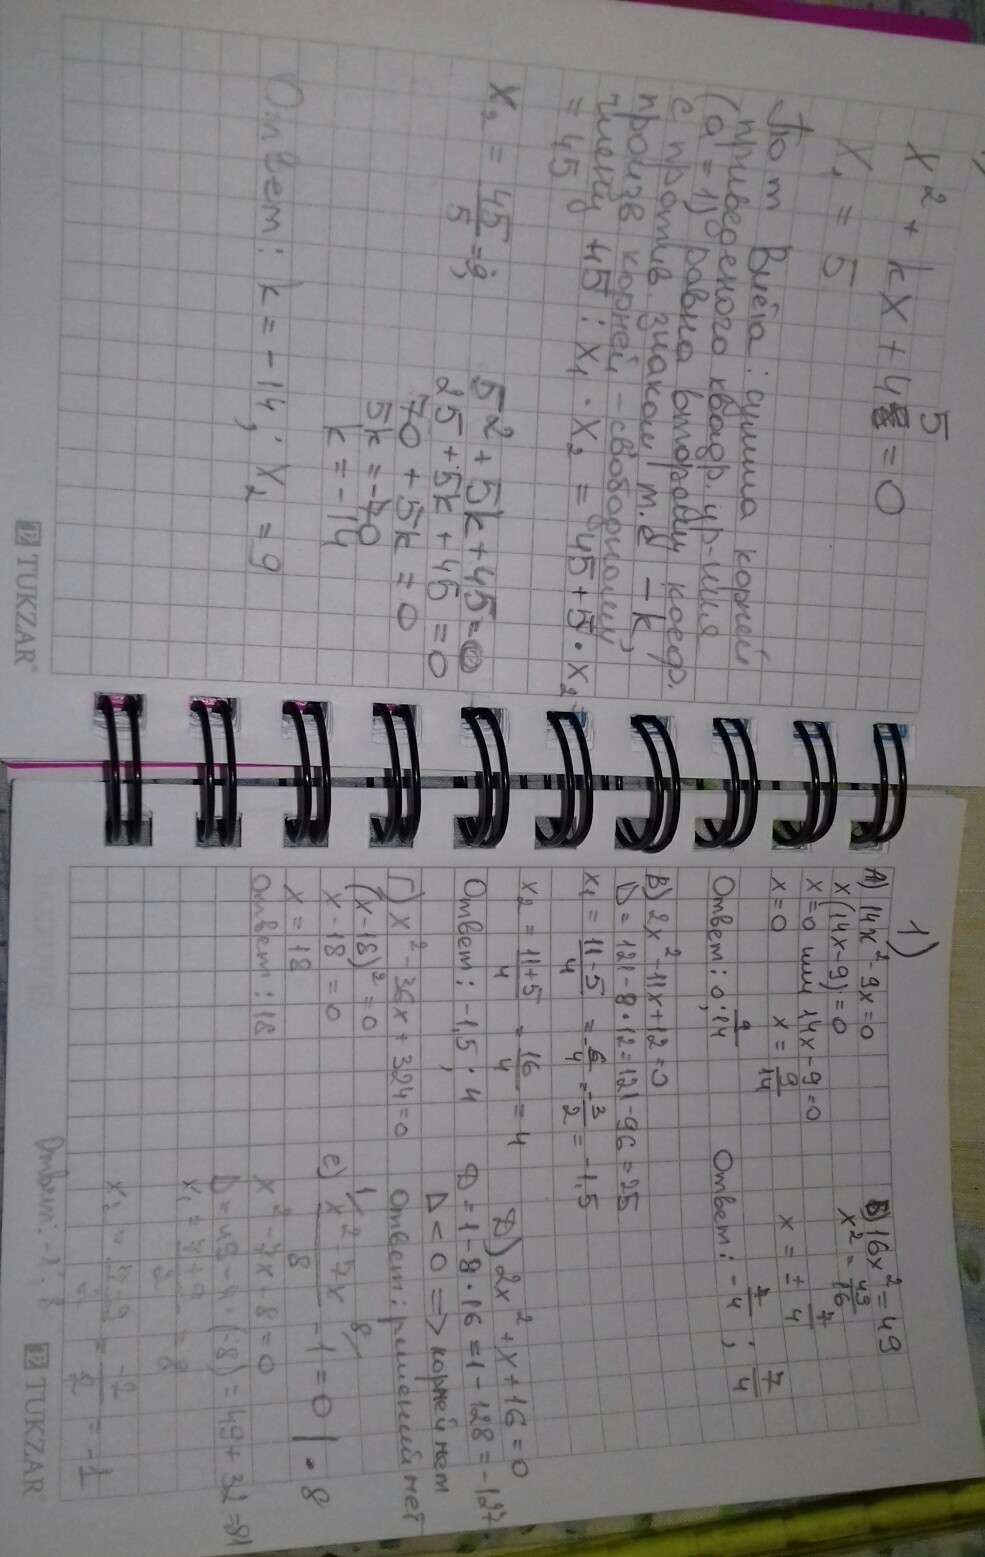 x² + kx + 45 = 0
x₁ = 5
По т Виета: сумма корней
приведеного квадр. ур-ния
(a = 1) равна второму коеф.
с против. знаком, т.е - k
произв корней - свободному
члену 45: x₁ · x₂ = 45 + 5 · x₂ =
= 45
x₂ = 45/5 = 9;
5² + 5k + 45 = 0
25 + 5k + 45 = 0
70 + 5k = 0
5k = -70
k = -14
Ответ: k = -14; x₂ = 9
TUKZAR
1)
А) 14x² - 9x = 0
x(14x-9) = 0
x=0 или 14x-9=0
x=0 x = 9/14
Ответ: 0; 9/14
Б) 16x² = 49
x² = 49/16
x = ± 7/4
Ответ: -7/4; 7/4
В) 2x² - 11x + 12 = 0
D = 121 - 8·12 = 121 - 96 = 25
x₁ = 11-5/4 = 6/4 = -3/2 = -1,5
x₂ = 11+5/4 = 16/4 = 4
Ответ: -1,5; 4
Г) x² - 36x + 324 = 0
(x-18)² = 0
x - 18 = 0
x = 18
Ответ: 18
Д) 2x² + x + 16 = 0
D = 1 - 8·16 = 1 - 128 = -127
D < 0 => корней нет
Ответ: решений нет
е) x² - 7x/8 - 1 = 0 | · 8
x² - 7x - 8 = 0
D = 49 - 4·(-8) = 49 + 32 = 81
x₁ = 7+9/2 = 8
x₂ = 7-9/2 = -2/2 = -1
Ответ: -1; 8
TUKZAR